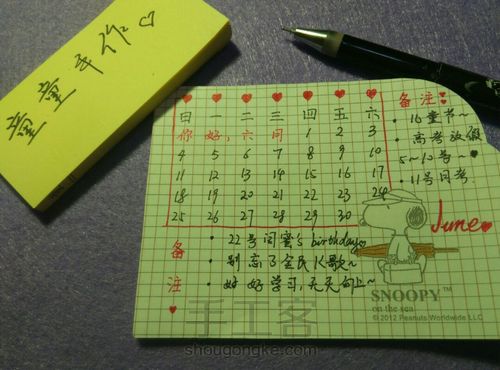 童童手作
日 一 二 三 四 五 六
你好，六月 1 2 3
4 5 6 7 8 9 10
11 12 13 14 15 16 17
18 19 20 21 22 23 24
25 26 27 28 29 30
备注
· 16童节~
· 高考放假
5~10号~
· 11号月考
June
备注
· 22号闺蜜's birthday
· 别忘了全民K歌~
· 好好学习，天天向上~
SNOOPY
on the sea
© 2012 Peanuts Worldwide LLC
手工客
shougongke.com